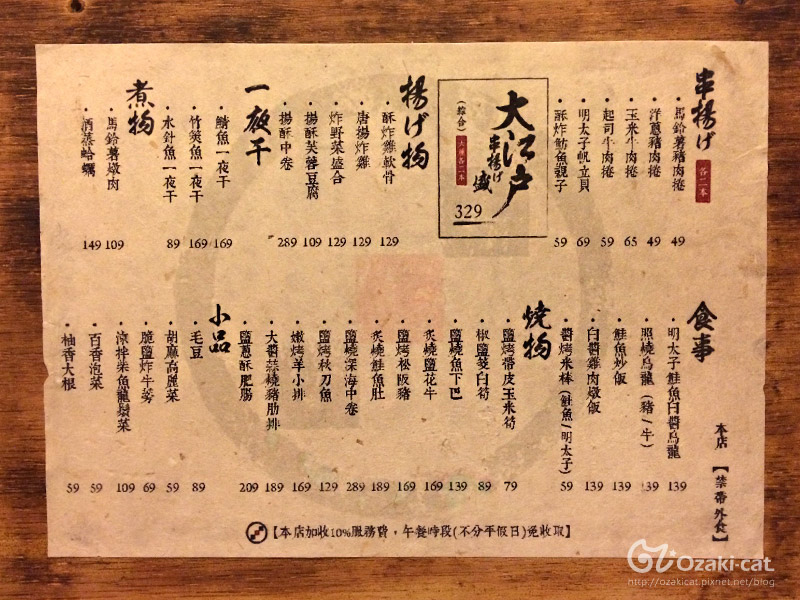 串揚げ 各二本
・馬鈴薯豬肉捲 49
・洋蔥豬肉捲 49
・玉米牛肉捲 65
・起司牛肉捲 59
・明太子帆立貝 69
・酥炸魴魚親子 59
大江戶
串揚げ盛
(綜合)
329
揚げ物
・酥炸雞軟骨 129
・唐揚炸雞 129
・炸野菜盛合 129
・揚酥芙蓉豆腐 109
・揚酥中卷 289
一夜干
・鯖魚一夜干 169
・竹筴魚一夜干 169
・水針魚一夜干 89
煮物
・馬鈴薯燉肉 109
・酒蒸蛤蠣 149
食事
・明太子鮭魚白醬烏龍 139
・照燒烏龍(豬/牛) 139
・鮭魚炒飯 139
・白醬雞肉燉飯 139
・醬烤米棒(鮭魚/明太子) 59
燒物
・鹽烤帶皮玉米筍 79
・椒鹽筊白筍 89
・鹽燒魚下巴 139
・炙燒鹽花牛 169
・鹽烤松阪豬 169
・炙燒鮭魚肚 189
・鹽燒深海中卷 289
・鹽烤秋刀魚 129
・嫩烤羊小排 169
・大醬蒜燒豬肋排 189
・鹽蔥酥肥腸 209
小品
・毛豆 89
・胡麻高麗菜 59
・脆鹽炸牛蒡 69
・涼拌柴魚龍鬚菜 109
・百香泡菜 59
・柚香大根 59
本店【禁帶外食】
【本店加收10%服務費，午餐時段(不分平假日)免收取】
Ozaki-cat
http://ozakicat.pixnet.net/blog